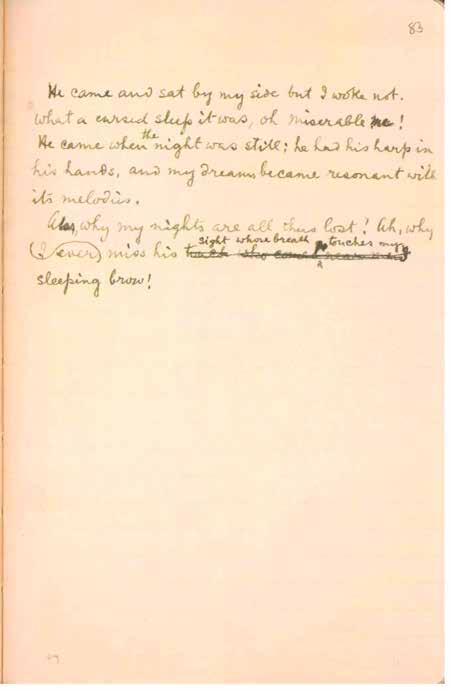 83
He came and sat by my side but I woke not.
What a cursed sleep it was, oh miserable me!
He came when the night was still; he had his harp in
his hands, and my dreams became resonant with
its melodies.
Alas, why my nights are all thus lost? Ah, why
I ever miss his sight whose breath touches my
sleeping brow!